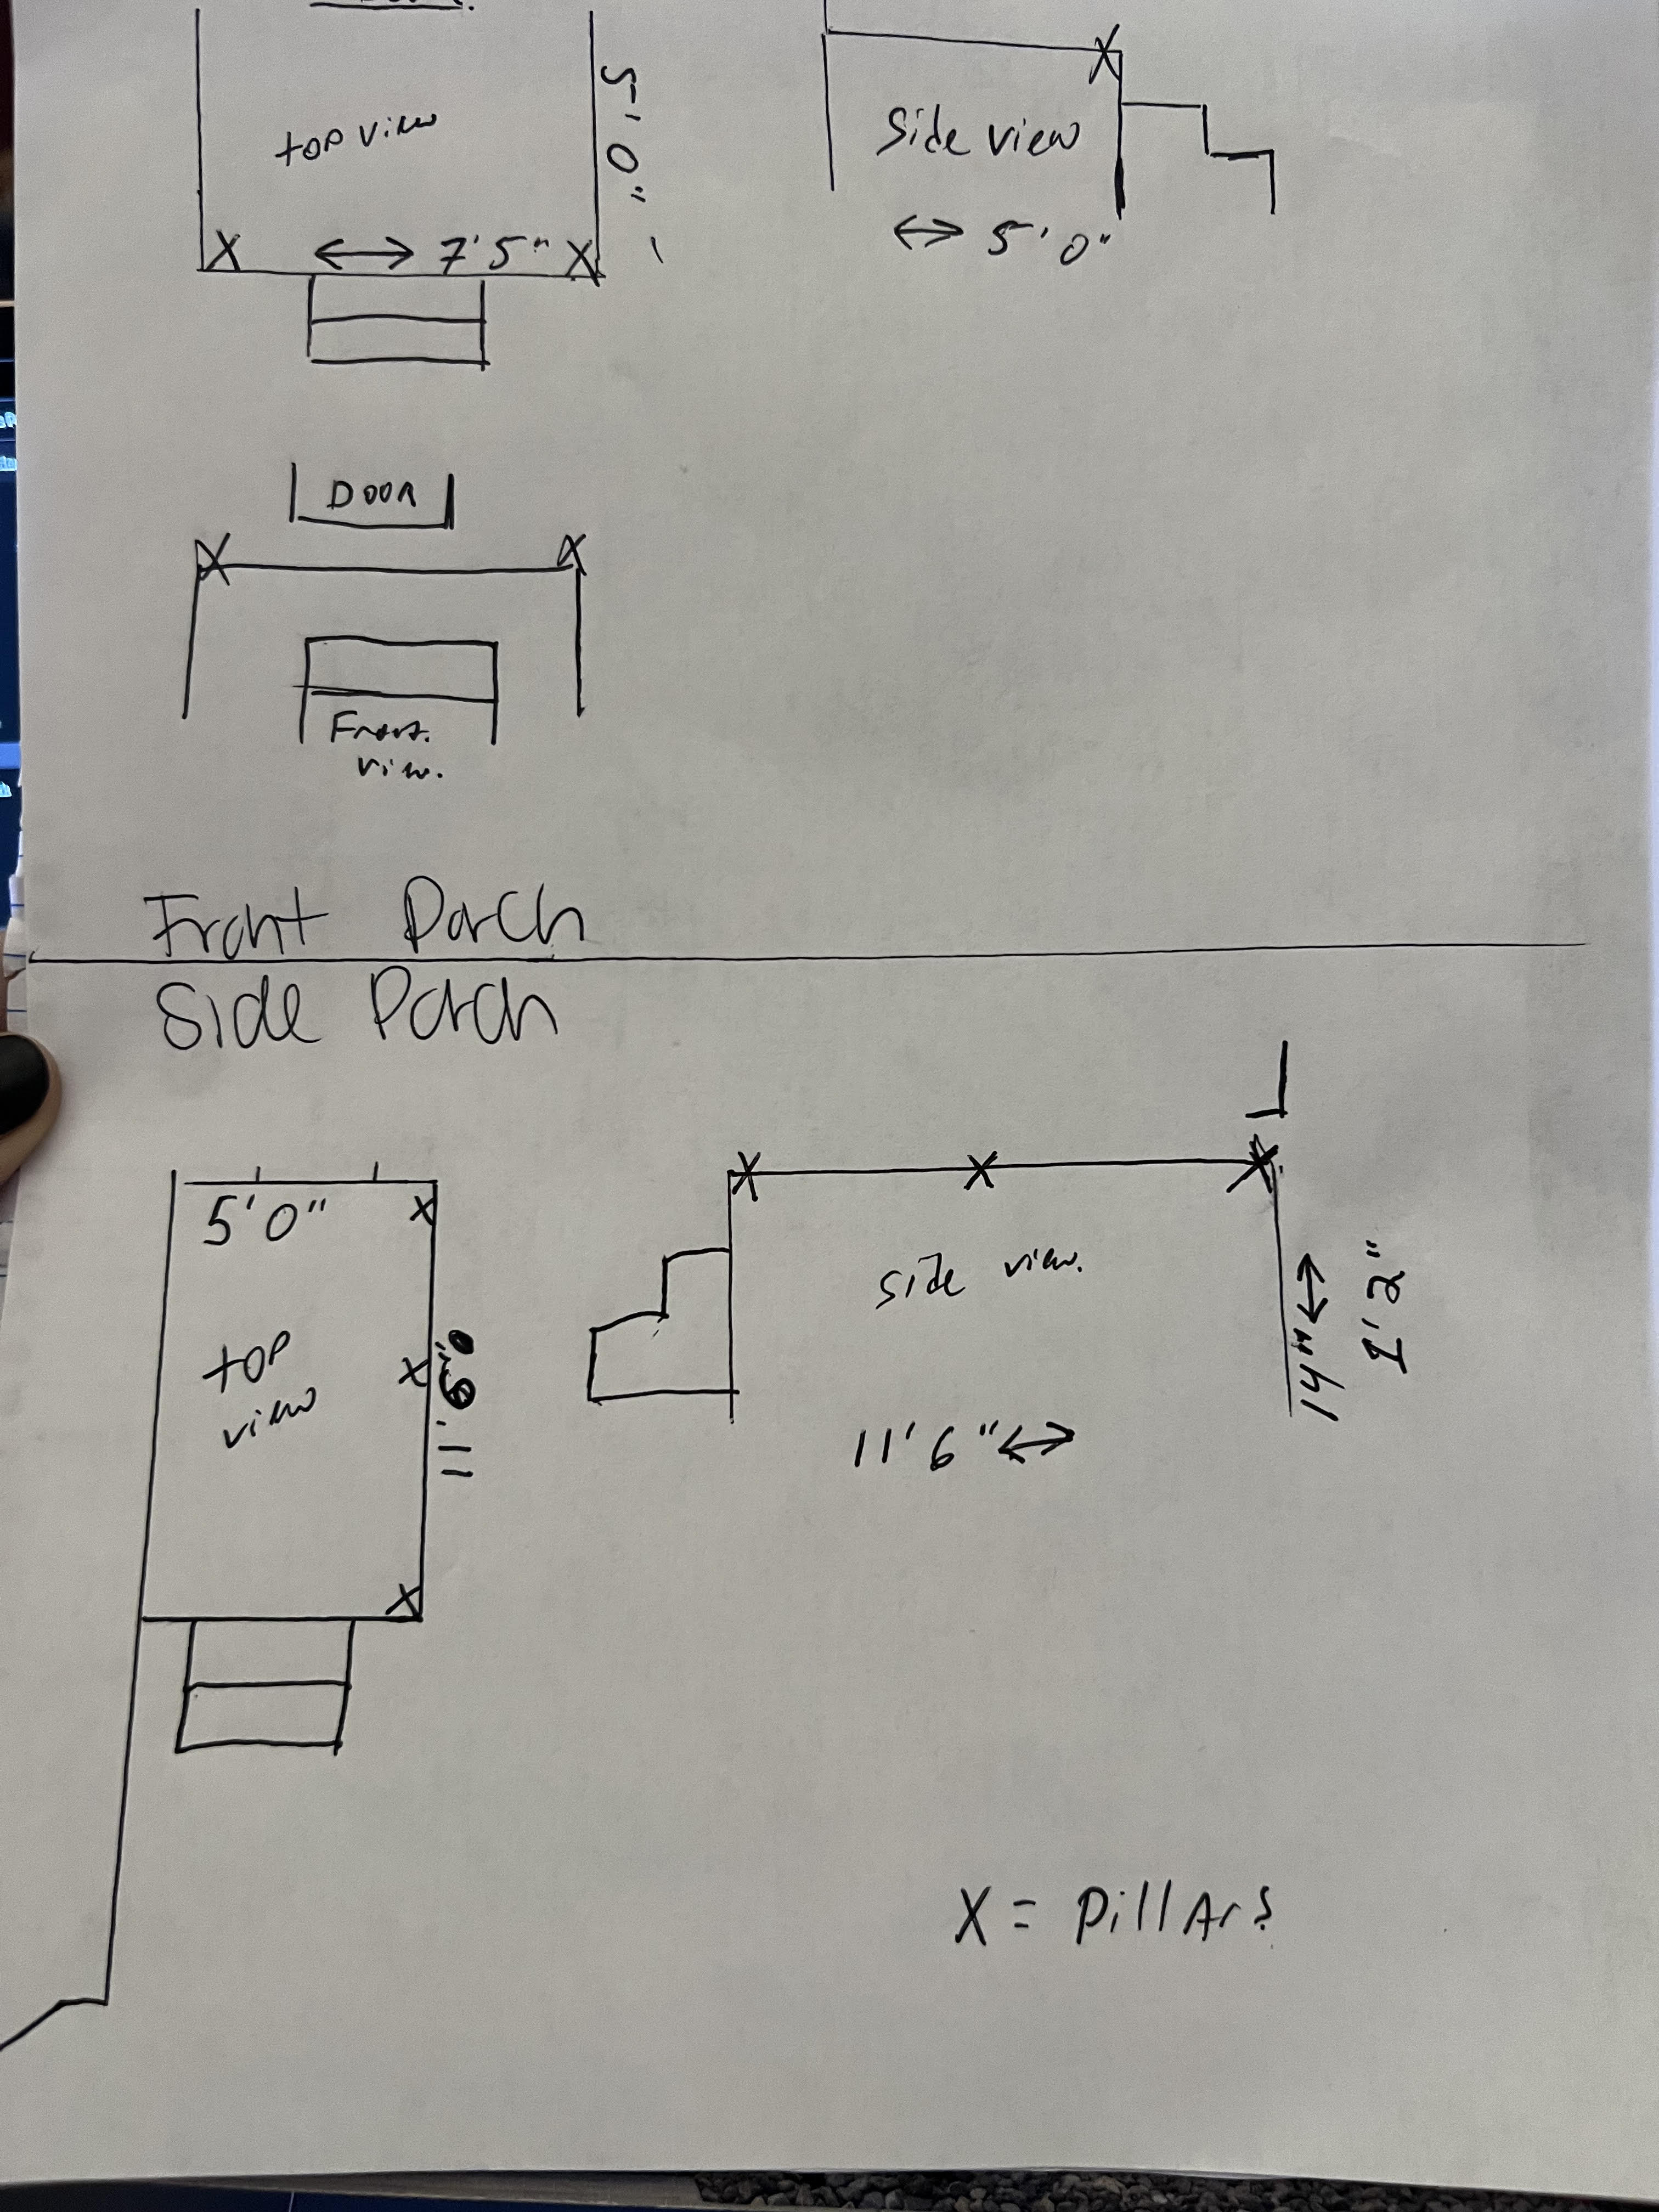 top view
5'-0"
7'5"
X
X
X
Side view
5'0"
DOOR
X
X
Front.
view.
Front Porch
Side Porch
5'0"
X
X
X
top
view
11'6"
X
X
X
side view.
14"
1'2"
11'6"
X = pillars